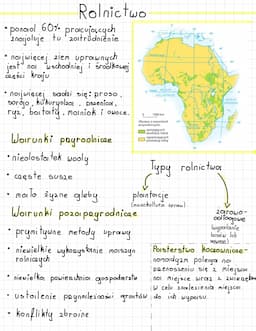 Rolnictwo
• ponad 60% pracujących
znajduje tu zatrudnienie
• najwięcej ziem uprawnych
jest na wschodniej i środkowej
części kraju
• najwięcej sadzi się: proso,
sorgo, kukurydza, pszenica,
ryż, bataty, maniok i owoce.
Warunki przyrodnicze
• niedostatek wody
• częste susze
• mało żyzne gleby
Warunki pozaprzyrodnicze
• prymitywne metody uprawy
• niewielkie wykorzystanie maszyn
rolniczych
• niewielka powierzchnia gospodarstw
• ustalenie przynależności gruntów
• konflikty zbrojne
Typy rolnictwa
plantacje
(monokultura upraw)
żarowo-
odłogowe
(wypalanie
lasów lub
sawann)
Pasterstwo koczownicze-
nomadyzm polega na
przenoszeniu się z miejsca
na miejsce wraz z zwierzętami
w celu znalezienia miejsca
do ich wypasu.